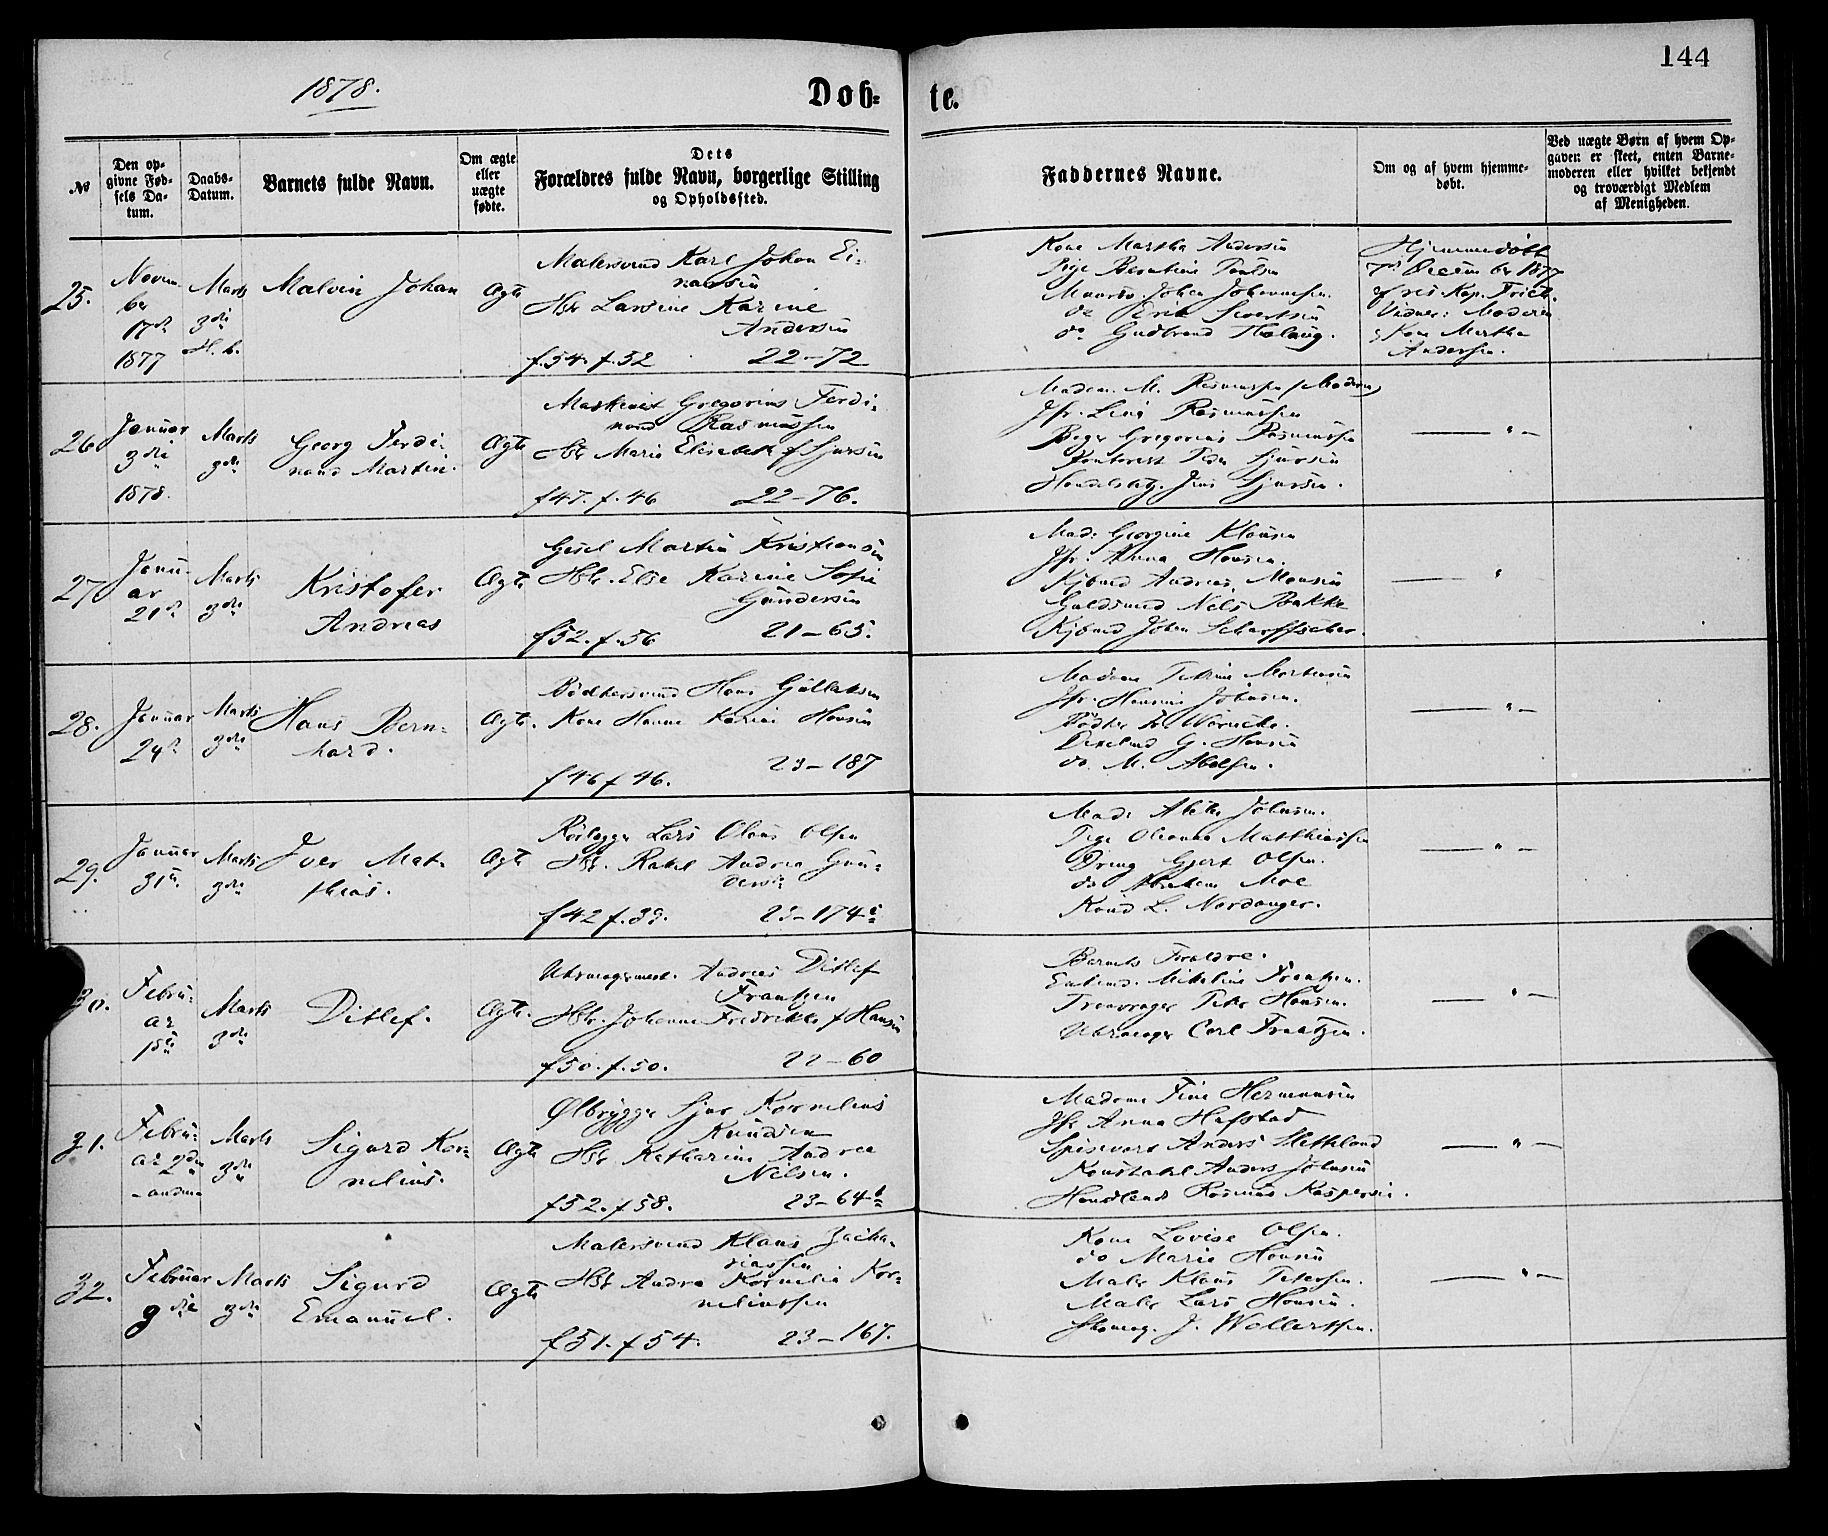 144
1878.
Døb-te.
№
Den op-
givne Fød-
sels Da-
tum.
Daabs-
Datum.
Barnets fulde Navn.
Om ægte
eller
uægte
fødte.
Dets
Forældres fulde Navn, borgerlige Stilling
og Opholdssted.
Faddernes Navne.
Om og af hvem hjemme-
døbt.
Ved uægte Børn af hvem Op-
gaven er skeet, enten Barne-
moderen eller hvilket bekjendt
og troværdigt Medlem
af Menigheden.
25.
Novem
ber
17de
1877
Marts
3die
H. k.
Malvin Johan
Ægte
Malersvend Karl Johan Ei-
narsen
Hstr Larsine Karine
Andersen
f.54. f.52 22-72
Kone Martha Andersen
Pige Berntine
Johan Johannesen
do Erik Sivertsen
do Gudbrand
Hjemmedøbt
7de December 1877
af res. Kap.
Vidner: Moderen
Kone Martha
Andersen.
26
Januar
3die
1878.
Marts
3die
Georg Ferdi-
nand Martin.
Ægte
Maskinist Gregorius Ferdi-
nand Rasmussen
Hstr Marie Elisabeth f Sjursen
f47. f.46 22-76.
Madam M. Rasmussen (Moderen)
Jfr. Lina Rasmussen
Gregorius Rasmussen
Kontorist Peder Sjursen
Jens Sjursen.
— " —
27
Janu-
ar
21de
Marts
3die
Kristofer
Andreas
Ægte
Gesel Martin Kristiansen
Hstr. Else Karine Sofie
Gundersen
f52. f.56 21-65.
Mad. Georgine Klausen
Jfr. Anna Hansen.
Kjbmd Andreas Monsen
Guldsmed Nels Bakke
Kjbmd Johan
— "
28.
Januar
24de
Marts
3die
Hans Bern-
hard.
Ægte.
Bødkersvend Hans Gullaksen
Kone Hanne Karine Hansen
f46 f46. 23-187
Madam Petrine Mortensen
Jfr. Hansine Johnsen.
Bødker Warncke.
G. Hansen
do. M. Abelsen.
— " —
29.
Januar
31te
Marts
3die
Iver Mat-
thias.
Ægte
Lars Olaus Olsen
Hstr. Rakel Andrea Gun-
dersen
f42 f.39. 23-174c
Mad. Johnsen.
Pige Oleanna Matthiassen
Dreng Gjert Olsen.
do Abraham Moe
Knud L. Nordanger.
— " —
30.
Febru-
ar
1ste
Marts
3die
Ditlef.
Ægte.
Uhrmagermest. Andreas Ditlef
Frantzen
Hstr. Johanne Fredrikke f Hansen
f50. f.50. 22-60
Barnets Forældre.
Mikeline Frantzen.
Peter Hansen.
Uhrmager Carl Frantzen.
— " —
31.
Febru-
ar 2den
Marts
3die
Sigurd Kor-
nelius.
Ægte
Ølbrygger Sjur Kornelius
Knudsen
Hstr Katharine Andrea
Nilsen.
f52. f58. 23-64b
Madame Tine Hermansen
Jfr Anna Hafstad
Spisevert Anders
Konstabel Anders Johnsen
Rasmus Kaspersen.
— " —
32.
Februar
9die
Marts
3die
Sigurd
Emanuel.
Ægte
Malersvend Klaus Zacha-
riassen
Hstr Andrea Kornelia Kor-
neliussen
f51. f54. 23-167.
Kone Lovise Olsen.
do Marie Hansen
Maler Klaus Petersen.
Maler Lars Hansen.
Skomag. J. Wallertsen.
— " —